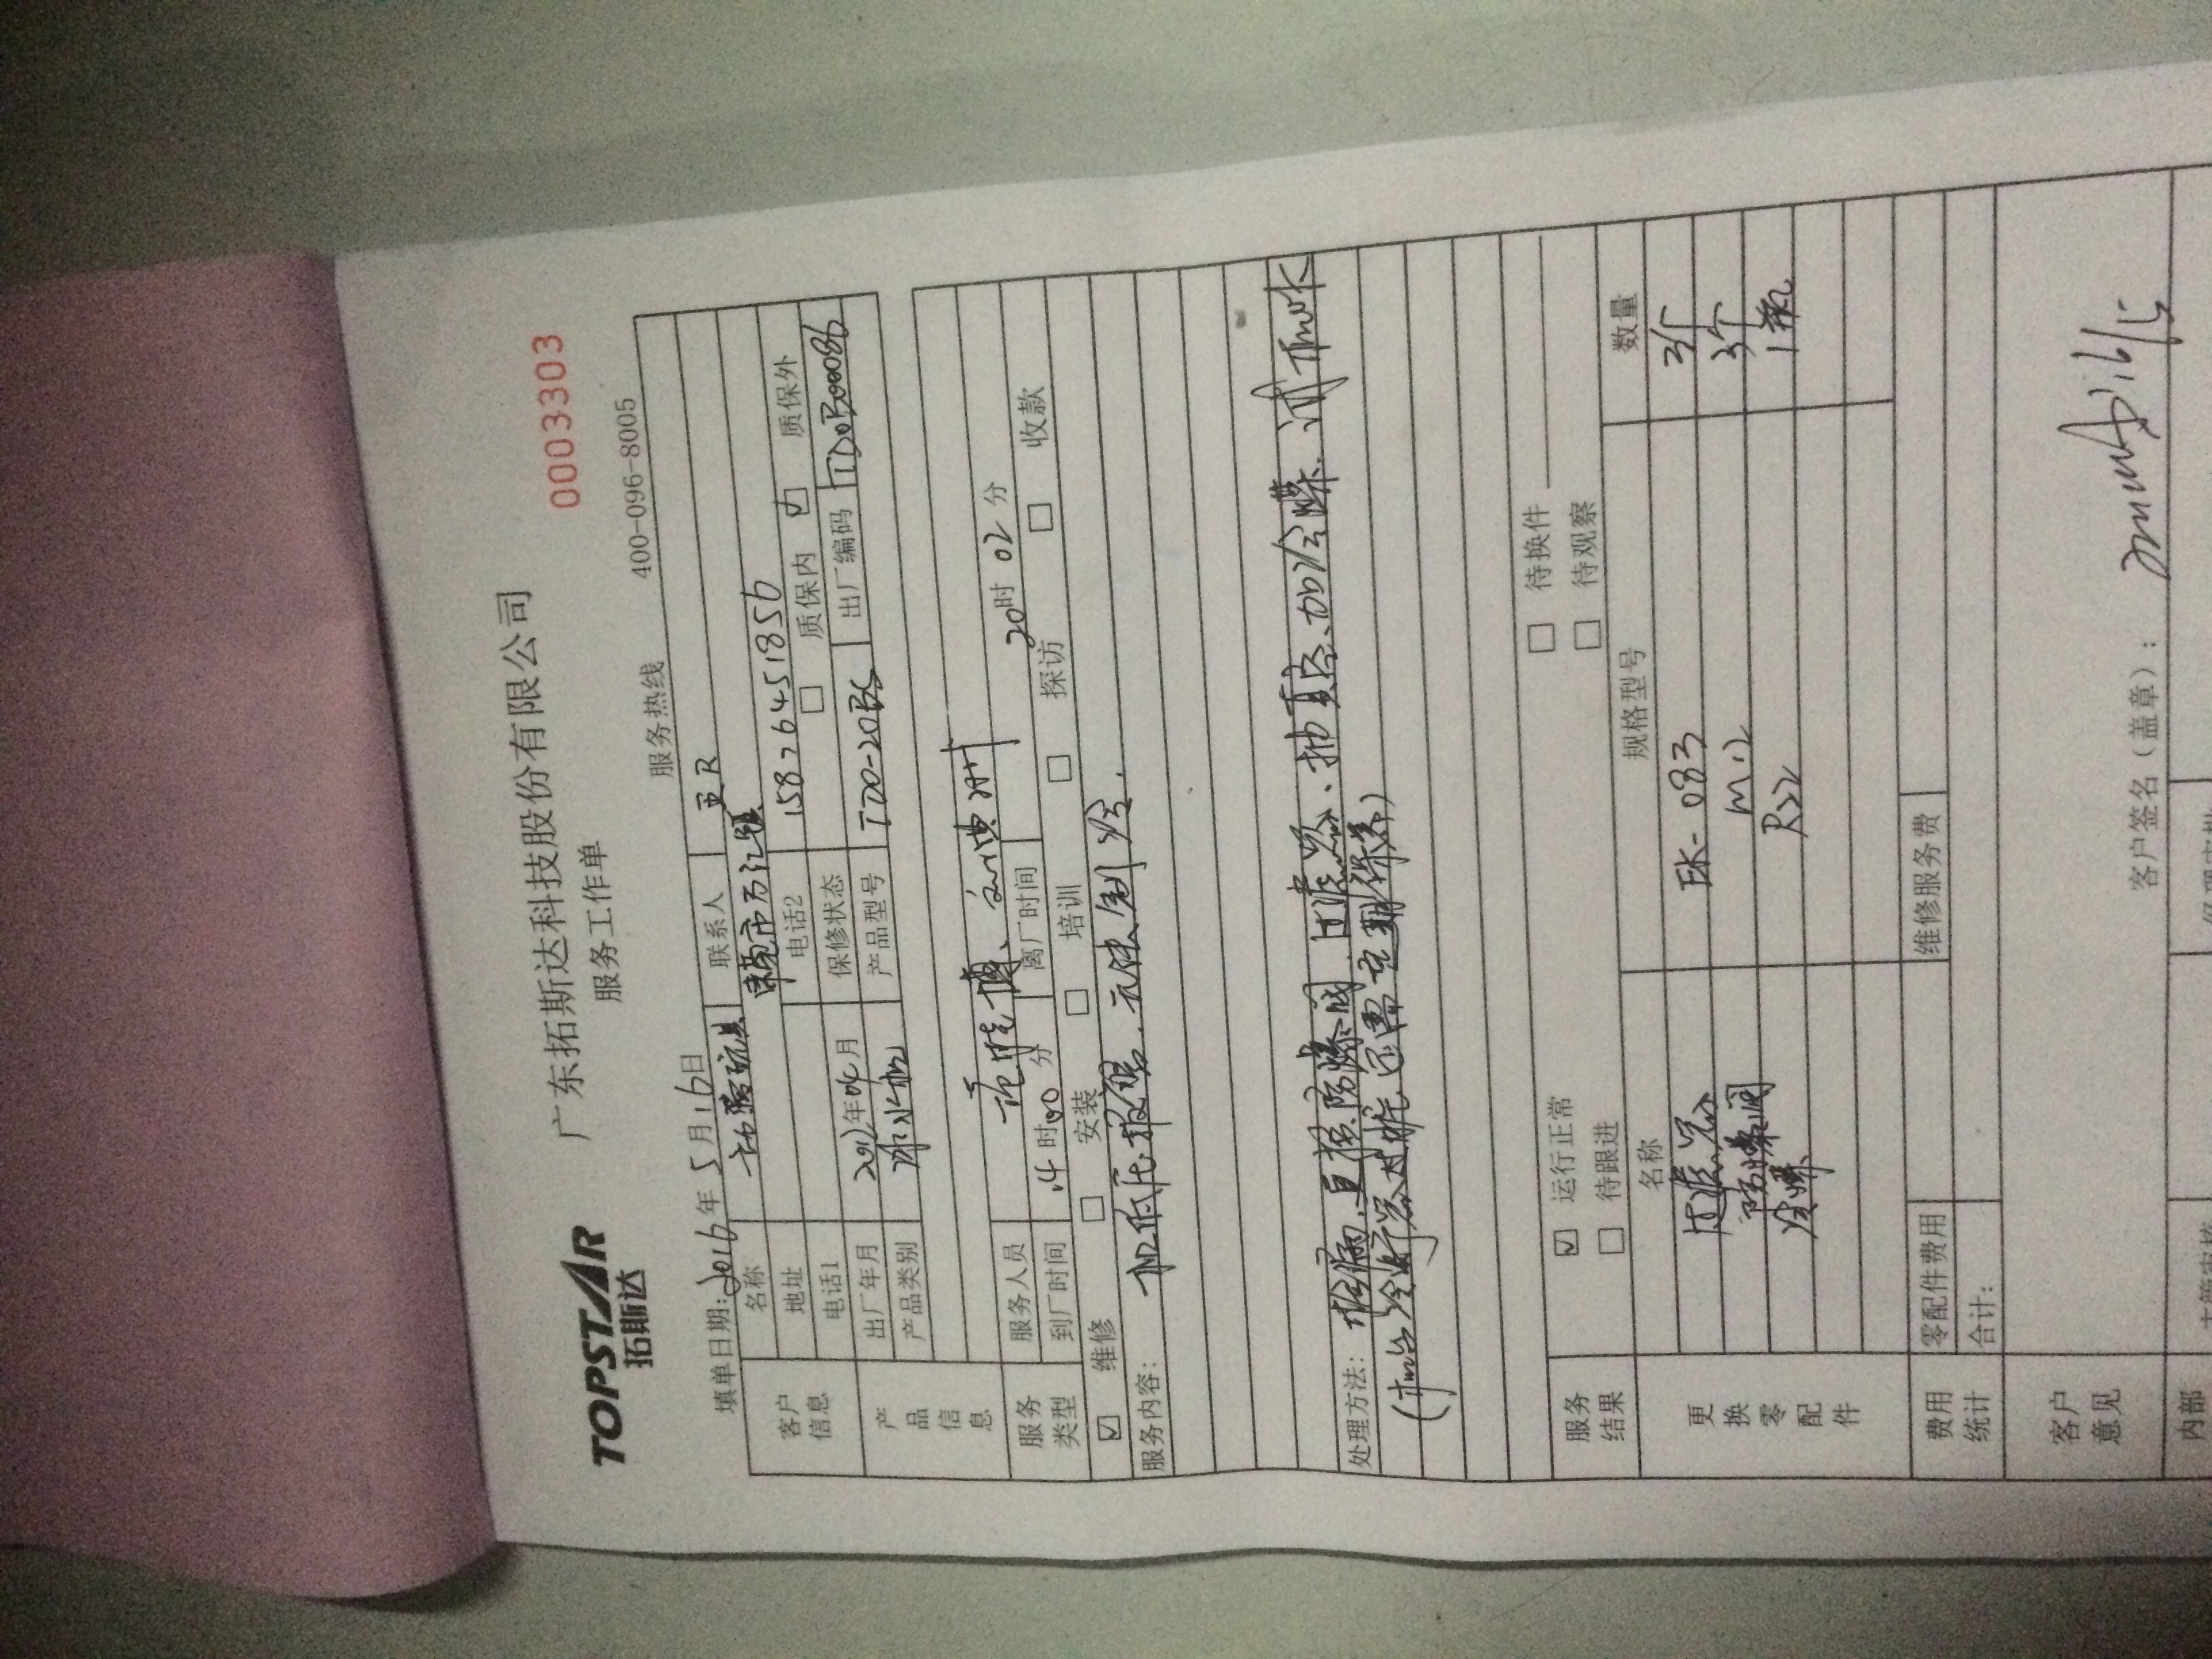 TOPSTAR
拓斯达
广东拓斯达科技股份有限公司
0003303
服务工作单
填单日期:2016年5月16日
服务热线 400-096-8005
客户信息
名称 联系人
地址 东莞市万江镇
电话1 电话2 15826451856
产品信息
出厂年月 年04月 保修状态 质保内 质保外
产品类别 冰水机 产品型号 TDO-20BS 出厂编码
服务类型
服务人员
到厂时间 14时00分 离厂时间 20时02分
维修 安装 培训 探访 收款
服务内容: 机低压报警.无法制冷.
处理方法: 检漏.更换防爆阀.过滤器、抽真空、加冷媒.试机OK
还需定期保养)
服务结果
运行正常 待换件
待跟进 待观察
更换零配件
名称 规格型号 数量
过滤器 EK-083 3个
防爆阀 3个
冷媒 R22 1瓶
费用统计
零配件费用 维修服务费
合计:
客户意见
客户签名(盖章):
内部